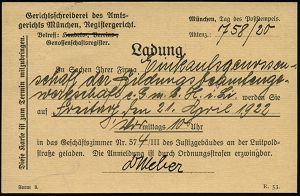 Gerichtsschreiberei des Amts-
gerichts München, Registergericht.
Betreff: Handels-, Vereins-
Genossenschaftsregister.
München, Tag des Poststempels.
Aktenz.: 758/20
Diese Karte ist zum Termin mitzubringen.
Ladung.
In Sachen Ihrer Firma Einkaufsgenossen-
schaft der
e.G.m.b.H. i. L.
werden Sie auf
Freitag, den 21. April 1920
Vormittags 10 Uhr
in das Geschäftszimmer Nr. 574/III des Justizgebäudes an der Luitpold-
straße geladen. Die Anmeldung ist durch Ordnungsstrafen erzwingbar.
Weber
R. 53.